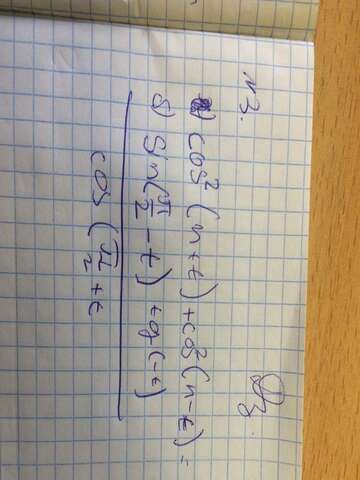 Дз.
№3.
а) cos²(π+t)+cos²(π-t)=
б) Sin(π/2-t) tg(-t)
cos(π/2+t